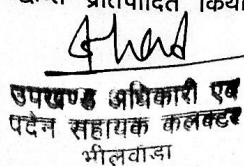 प्रतिपादित किया
उपखण्ड अधिकारी एवं
पदेन सहायक कलक्टर
भीलवाड़ा